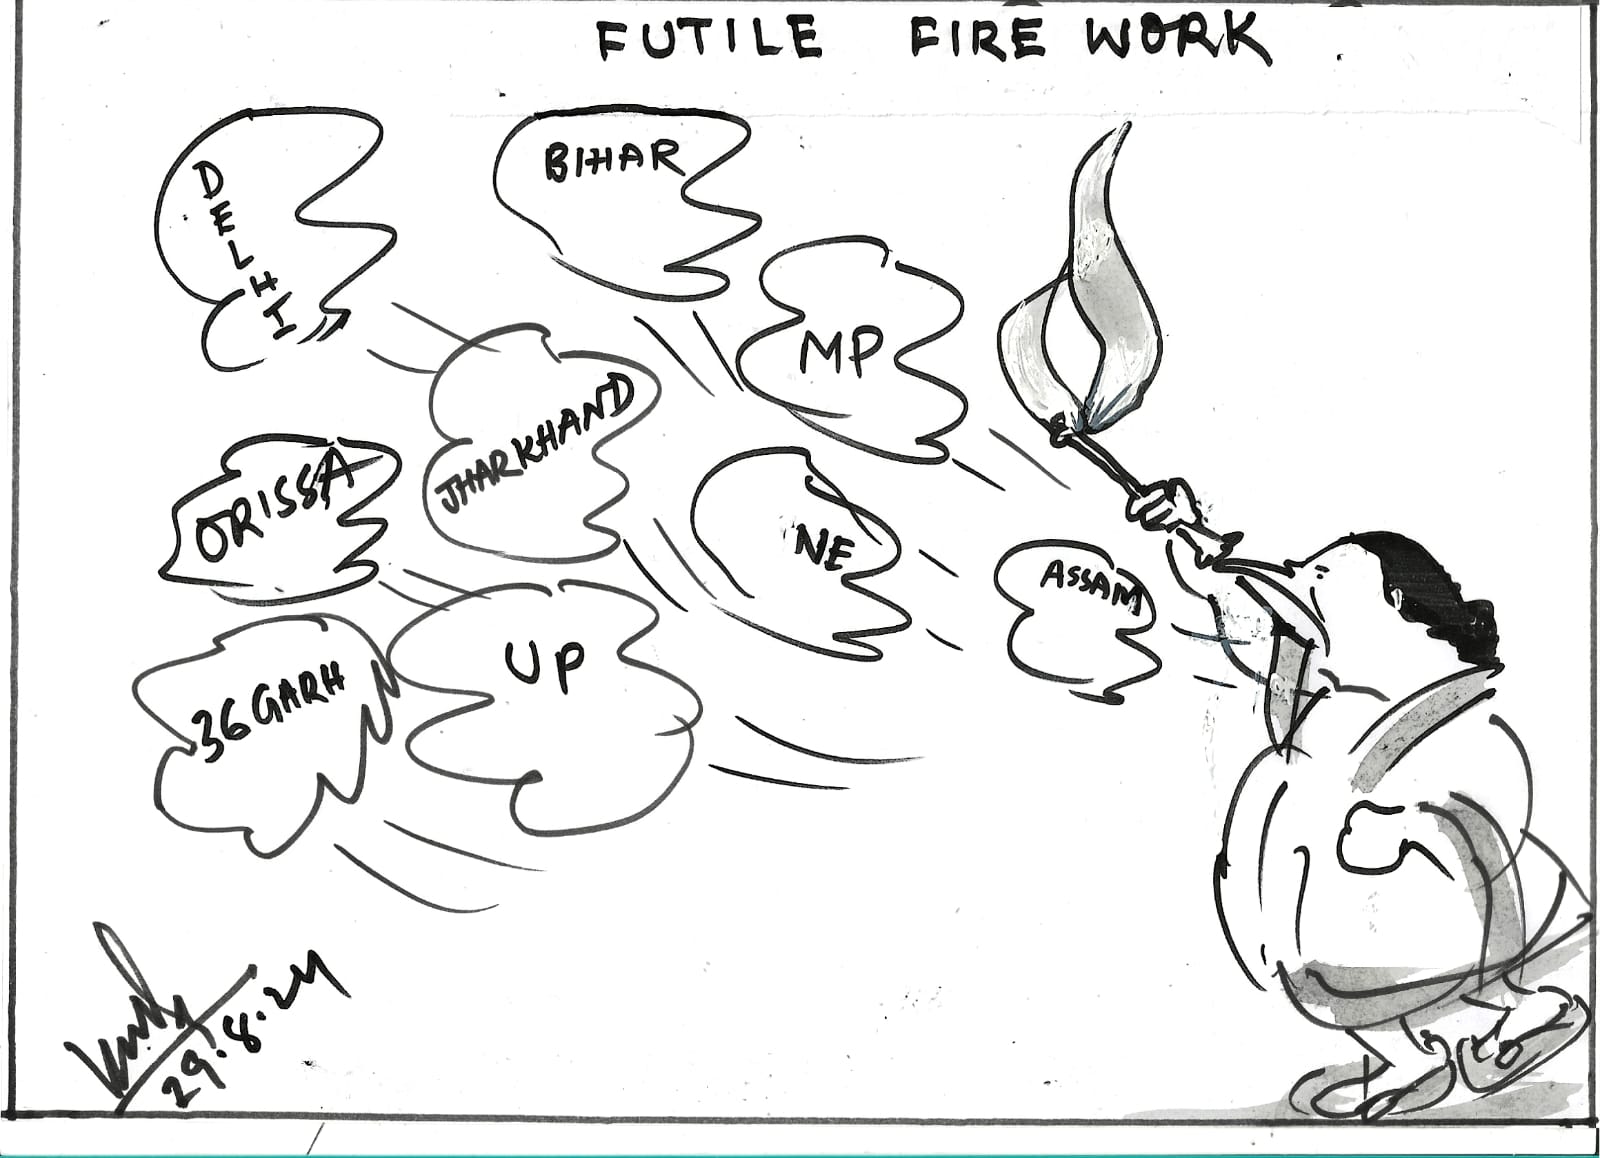 FUTILE FIRE WORK
DELHI
BIHAR
MP
JHARKHAND
ORISSA
NE
ASSAM
36GARH
UP
29.8.24